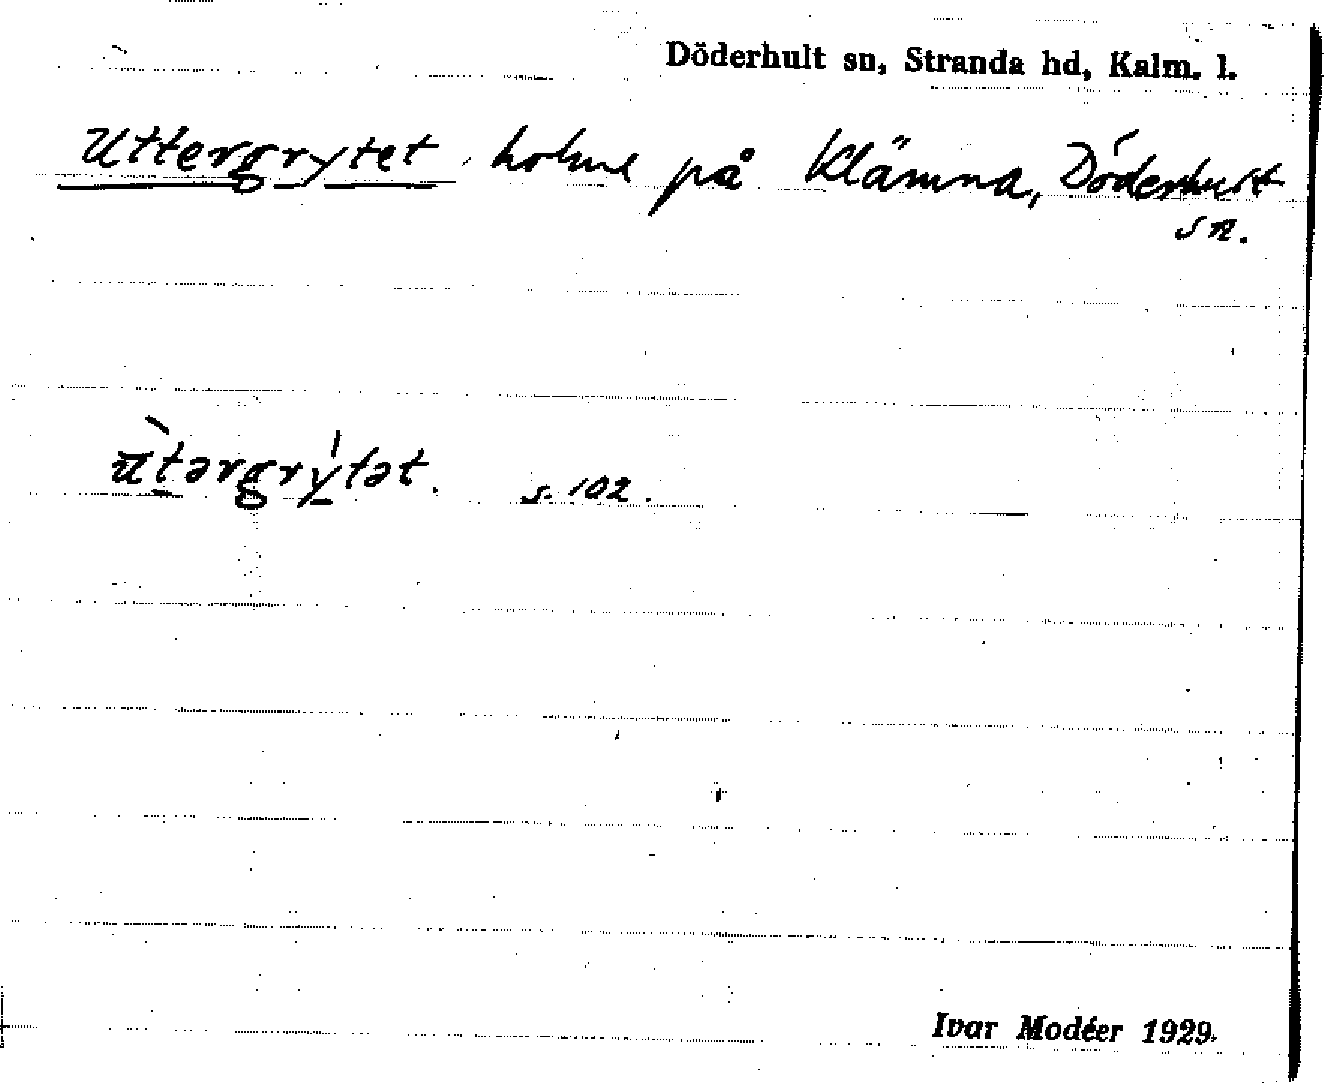 Döderhult sn, Stranda hd, Kalm. l.
Uttergrytet, holme på Klämna, Döderhult
sn.
ùtərgrýtət. s. 102.
Ivar Modéer 1929.